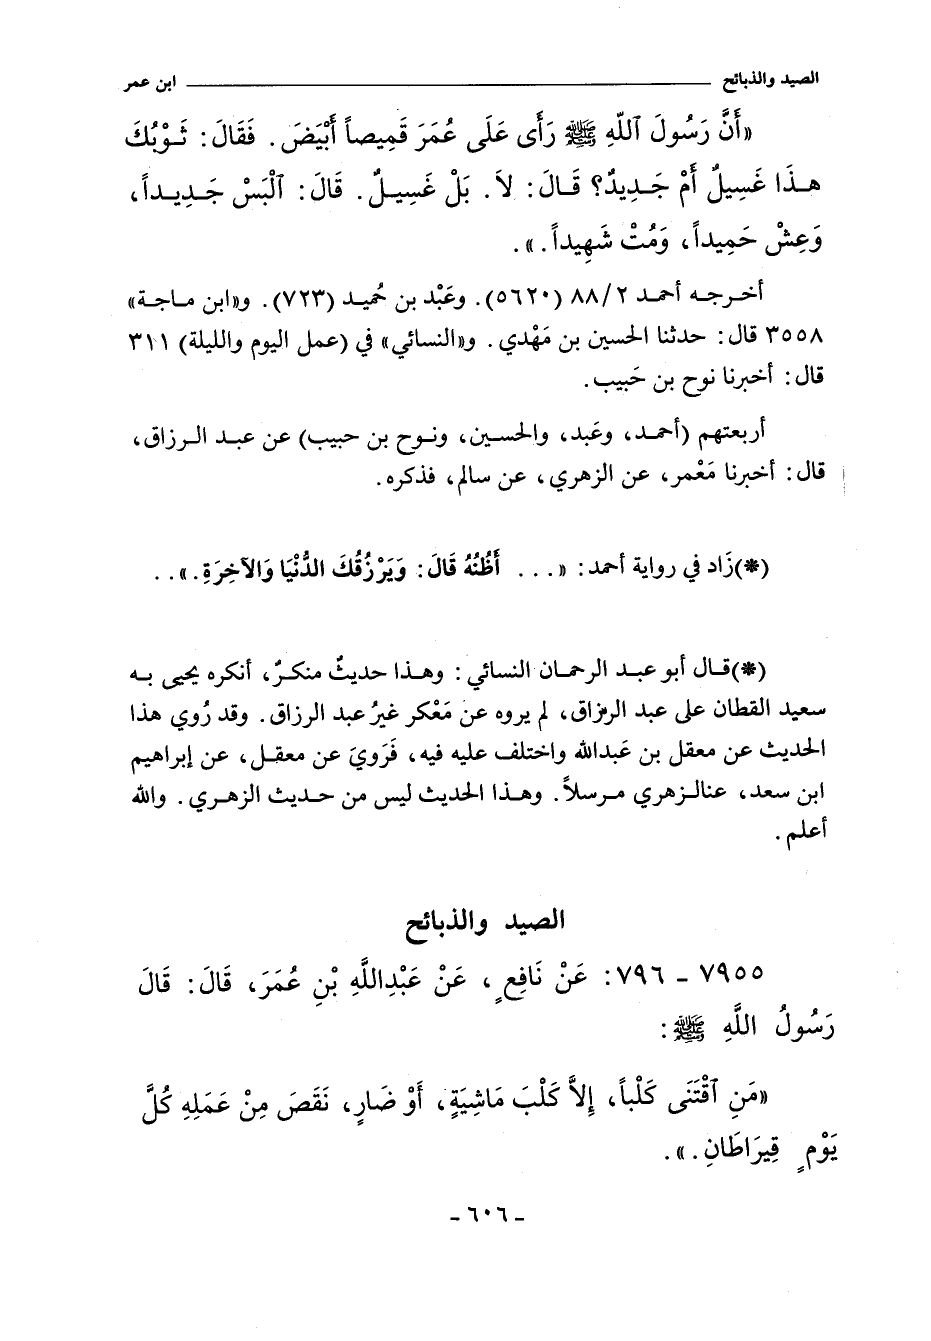 الصيد والذبائح ــــــــــــــــــــــــــــــــــــــ ابن عمر
«أَنَّ رَسُولَ ٱللّهِ ﷺ رَأَى عَلَى عُمَرَ قَمِيصاً أَبْيَضَ. فَقَالَ: ثَوْبُكَ
هذَا غَسِيلٌ أَمْ جَدِيدٌ؟ قَالَ: لاَ. بَلْ غَسِيلٌ. قَالَ: ٱلْبَسْ جَدِيداً،
وَعِشْ حَمِيداً، وَمُتْ شَهِيداً.».
أخرجه أحمد ٨٨/٢ (٥٦٢٠). وعَبْد بن حُميد (٧٢٣). و«ابن ماجة»
٣٥٥٨ قال: حدثنا الحسين بن مَهْدي. و«النسائي» في (عمل اليوم والليلة) ٣١١
قال: أخبرنا نوح بن حَبيب.
أربعتهم (أحمد، وعَبد، والحسين، ونوح بن حبيب) عن عبد الرزاق،
قال: أخبرنا مَعْمر، عن الزهري، عن سالم، فذكره.
(*)زَاد في رواية أحمد: «... أَظُنُهُ قَالَ: وَيَرْزُقُكَ الدُّنْيَا وَالآخِرَةِ.»..
(*)قال أبو عبد الرحمان النسائي: وهذا حديثٌ منكرٌ، أنكره يحيى به
سعيد القطان على عبد الرزاق، لم يروه عن مَعْكر غيرُ عبد الرزاق. وقد رُوي هذا
الحديث عن معقل بن عَبدالله واختلف عليه فيه، فَرَويَ عن معقل، عن إبراهيم
ابن سعد، عنالزهري مرسلاً. وهذا الحديث ليس من حديث الزهري. والله
أعلم.
الصيد والذبائح
٧٩٥٥ - ٧٩٦: عَنْ نَافِعٍ، عَنْ عَبْدِاللَّهِ بْنِ عُمَرَ، قَالَ: قَالَ
رَسُولُ اللَّهِ ﷺ:
«مَنِ ٱقْتَنَى كَلْباً، إِلاَّ كَلْبَ مَاشِيَةٍ، أَوْ ضَارٍ، نَقَصَ مِنْ عَمَلِهِ كُلَّ
يَوْمٍ قِيرَاطَانِ.».
- ٦٠٦ -